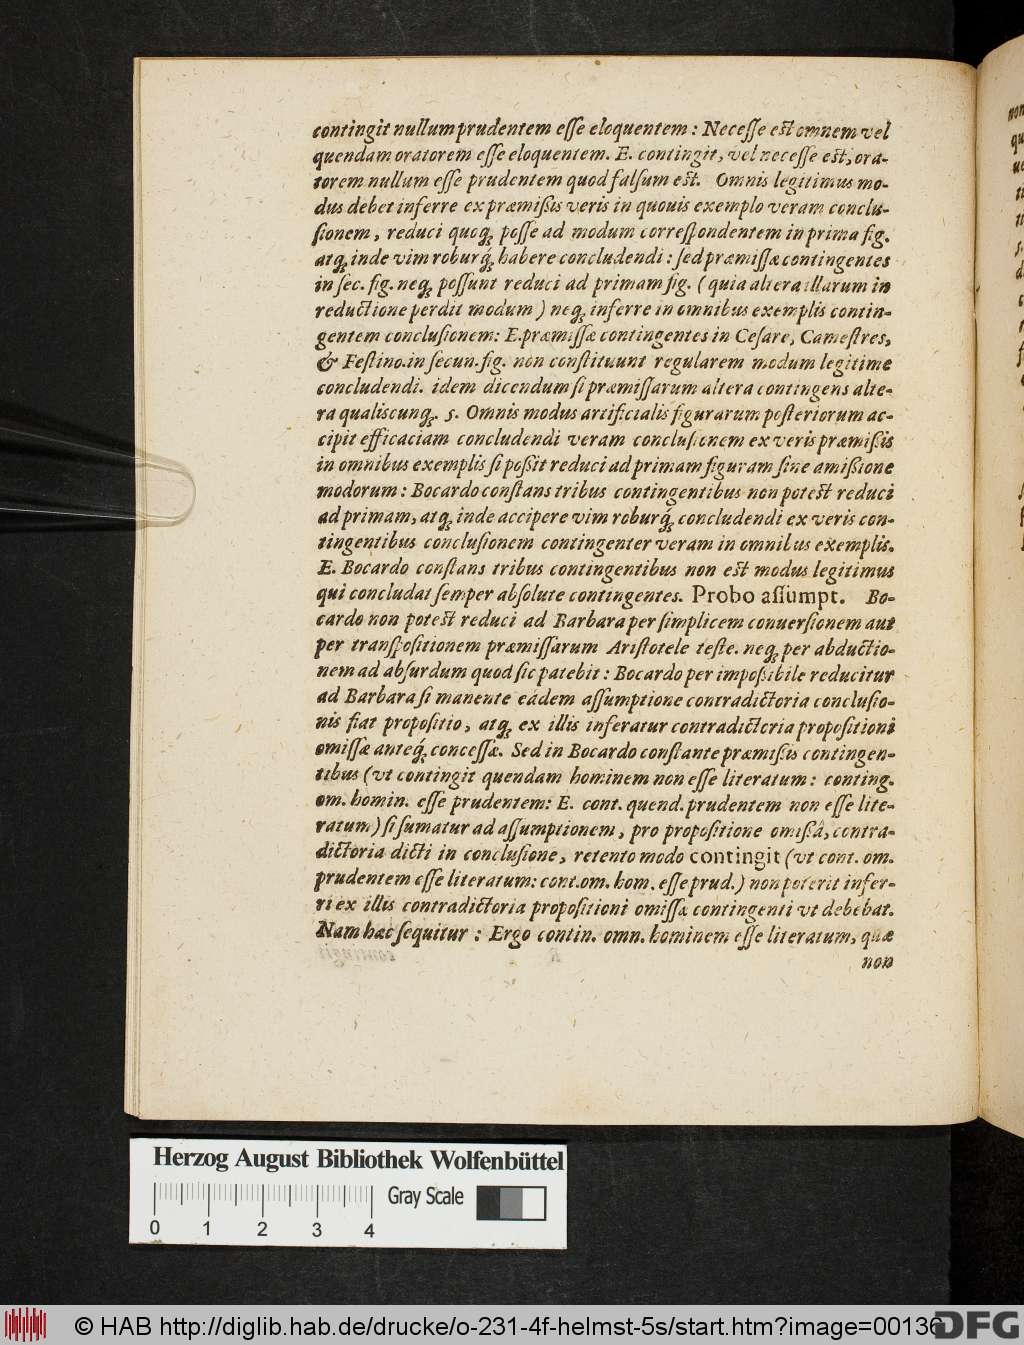 contingit nullum prudentem eſſe eloquentem: Neceſſe est omnem vel
quendam oratorem eſſe eloquentem. E. contingit, vel necesse est, ora-
torem nullum eſſe prudentem quod falſum est. Omnis legitimus mo-
dus debet inferre ex præmißis veris in quouis exemplo veram conclu-
ſionem, reduci quoq; poſſe ad modum correſpondentem in prima fig.
atq; inde vim roburq́; habere concludendi: ſed præmiſſæ contingentes
in ſec. fig. neq; poſſunt reduci ad primam fig. (quia altera illarum in
reductione perdit modum) neq; inferre in omnibus exemplis contin-
gentem concluſionem: E. præmiſſæ contingentes in Ceſare, Camestres,
& Feſtino. in ſecun. fig. non conſtituunt regularem modum legitime
concludendi. idem dicendum ſi præmiſſarum altera contingens alte-
ra qualiscunq;. 5. Omnis modus artificialis figurarum poſteriorum ac-
cipit efficaciam concludendi veram concluſionem ex veris præmißis
in omnibus exemplis ſi poßit reduci ad primam figuram ſine amißione
modorum: Bocardo conſtans tribus contingentibus non potest reduci
ad primam, atq; inde accipere vim roburq́; concludendi ex veris con-
tingentibus concluſionem contingenter veram in omnibus exemplis.
E. Bocardo conſtans tribus contingentibus non est modus legitimus
qui concludat ſemper abſolute contingentes. Probo aſſumpt. Bo-
cardo non potest reduci ad Barbara per ſimplicem conuerſionem aut
per tranſpoſitionem præmiſſarum Ariſtotele teſte. neq; per abductio-
nem ad abſurdum quod ſic patebit: Bocardo per impoßibile reducitur
ad Barbara ſi manente eadem aſſumptione contradictoria concluſio-
nis fiat propoſitio, atq; ex illis inferatur contradictoria propoſitioni
omiſſæ anteq́; conceſſæ. Sed in Bocardo conſtante præmißis contingen-
tibus (vt contingit quendam hominem non eſſe literatum: conting.
om. homin. eſſe prudentem: E. cont. quend. prudentem non eſſe lite-
ratum) ſi ſumatur ad aſſumptionem, pro propoſitione omißâ, contra-
dictoria dicti in concluſione, retento modo contingit (vt cont. om.
prudentem eſſe literatum: cont. om. hom. eſſe prud.) non poterit infer-
ri ex illis contradictoria propoſitioni omiſſæ contingenti vt debebat.
Nam hæc ſequitur: Ergo contin. omn. hominem eſſe literatum, quæ
non
Herzog August Bibliothek Wolfenbüttel
Gray Scale
0 1 2 3 4
© HAB http://diglib.hab.de/drucke/o-231-4f-helmst-5s/start.htm?image=00136
DFG